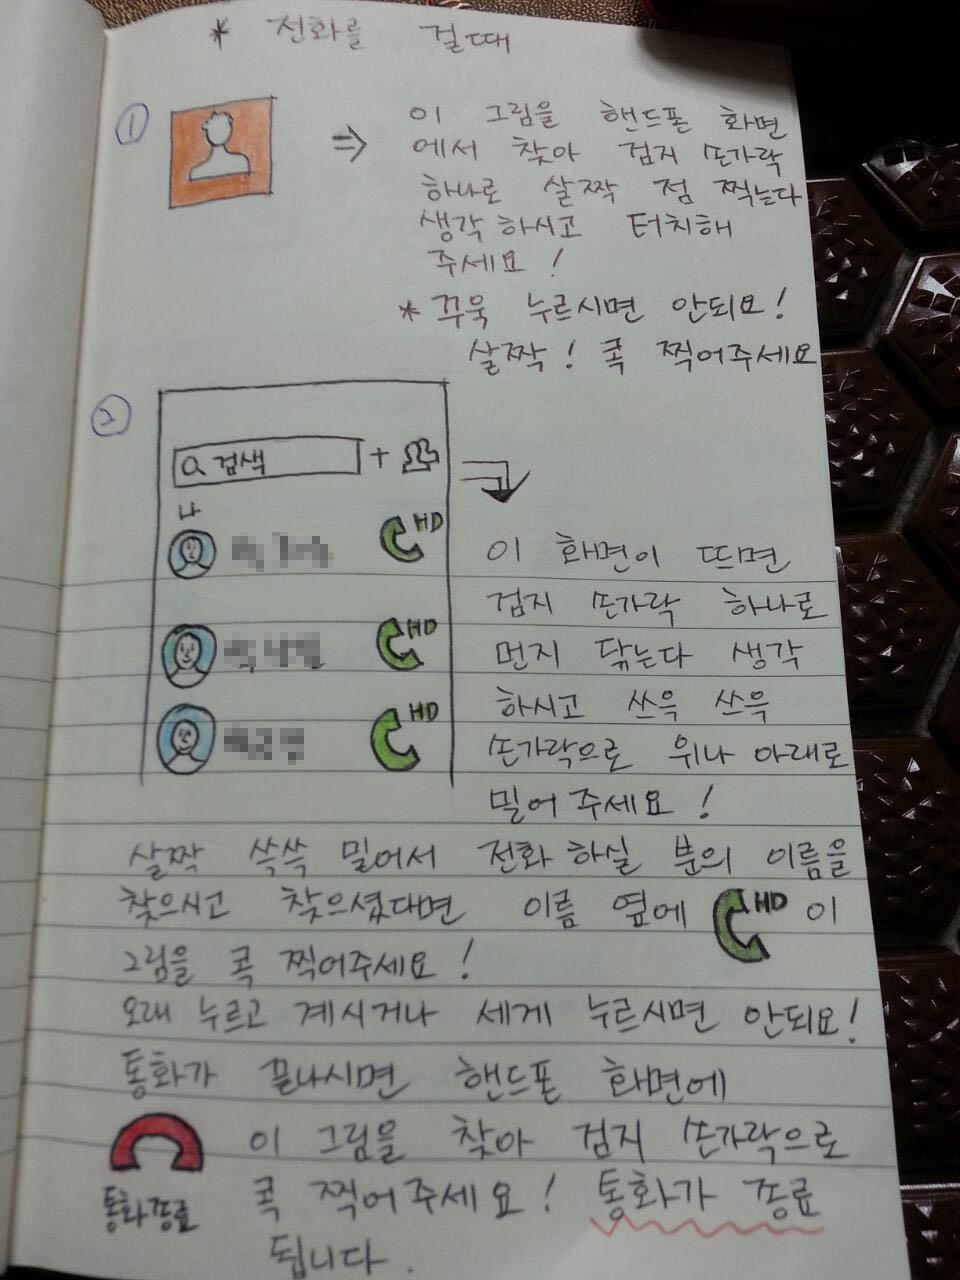 * 전화를 걸때
① ⇒ 이 그림을 핸드폰 화면
에서 찾아 검지 손가락
하나로 살짝 점 찍는다
생각 하시고 터치해
주세요 !
* 꾸욱 누르시면 안되요!
살짝! 콕 찍어주세요
②
검색 +
나
HD
HD
HD
이 화면이 뜨면
검지 손가락 하나로
먼지 닦는다 생각
하시고 쓰윽 쓰윽
손가락으로 위나 아래로
밀어 주세요 !
살짝 쓱쓱 밀어서 전화 하실 분의 이름을
찾으시고 찾으셨다면 이름 옆에 HD 이
그림을 콕 찍어주세요 !
오래 누르고 계시거나 세게 누르시면 안되요!
통화가 끝나시면 핸드폰 화면에
이 그림을 찾아 검지 손가락으로
통화종료
콕 찍어주세요! 통화가 종료
됩니다.